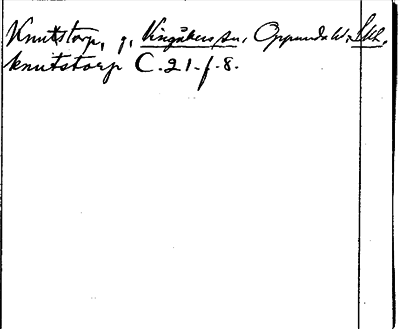 Knutstorp, g, Vingåkers sn, Oppunda hd. Skl.
knutstorp C.21.f.8.